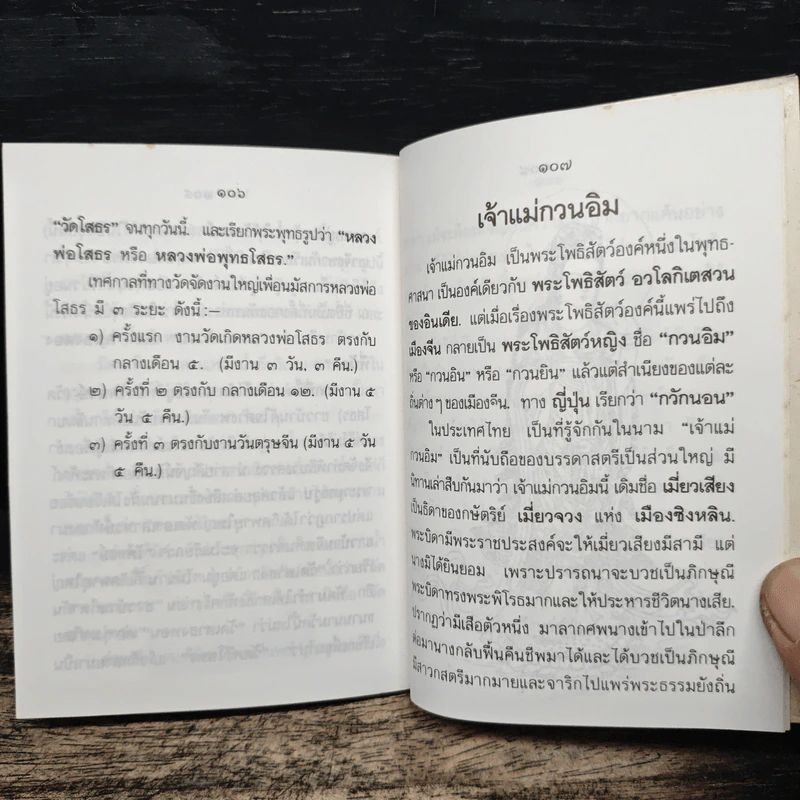 ๑๐๖
"วัดโสธร" จนทุกวันนี้. และเรียกพระพุทธรูปว่า "หลวง
พ่อโสธร หรือ หลวงพ่อพุทธโสธร."
เทศกาลที่ทางวัดจัดงานใหญ่เพื่อนมัสการหลวงพ่อ
โสธร มี ๓ ระยะ ดังนี้ :—
๑) ครั้งแรก งานวัดเกิดหลวงพ่อโสธร ตรงกับ
กลางเดือน ๕. (มีงาน ๓ วัน. ๓ คืน.)
๒) ครั้งที่ ๒ ตรงกับ กลางเดือน ๑๒. (มีงาน ๕
วัน ๕ คืน.)
๓) ครั้งที่ ๓ ตรงกับงานวันตรุษจีน (มีงาน ๕ วัน
๕ คืน.)
๑๐๗
เจ้าแม่กวนอิม
เจ้าแม่กวนอิม เป็นพระโพธิสัตว์องค์หนึ่งในพุทธ-
ศาสนา เป็นองค์เดียวกับ พระโพธิสัตว์ อวโลกิเตสวน
ของอินเดีย. แต่เมื่อเรื่องพระโพธิสัตว์องค์นี้แพร่ไปถึง
เมืองจีน กลายเป็น พระโพธิสัตว์หญิง ชื่อ "กวนอิม"
หรือ "กวนอิน" หรือ "กวนยิน" แล้วแต่สำเนียงของแต่ละ
ถิ่นต่างๆ ของเมืองจีน. ทาง ญี่ปุ่น เรียกว่า "กวักนอน"
ในประเทศไทย เป็นที่รู้จักกันในนาม "เจ้าแม่
กวนอิม" เป็นที่นับถือของบรรดาสตรีเป็นส่วนใหญ่ มี
นิทานเล่าสืบกันมาว่า เจ้าแม่กวนอิมนี้ เดิมชื่อ เมี่ยวเสียง
เป็นธิดาของกษัตริย์ เมี่ยวจวง แห่ง เมืองซิงหลิน.
พระบิดามีพระราชประสงค์จะให้เมี่ยวเสียงมีสามี แต่
นางมิได้ยินยอม เพราะปรารถนาจะบวชเป็นภิกษุณี
พระบิดาทรงพระพิโรธมากและให้ประหารชีวิตนางเสีย.
ปรากฏว่ามีเสือตัวหนึ่ง มาลากศพนางเข้าไปในป่าลึก
ต่อมานางกลับฟื้นคืนชีพมาได้และได้บวชเป็นภิกษุณี
มีสาวกสตรีมากมายและจาริกไปแพร่พระธรรมยังถิ่น